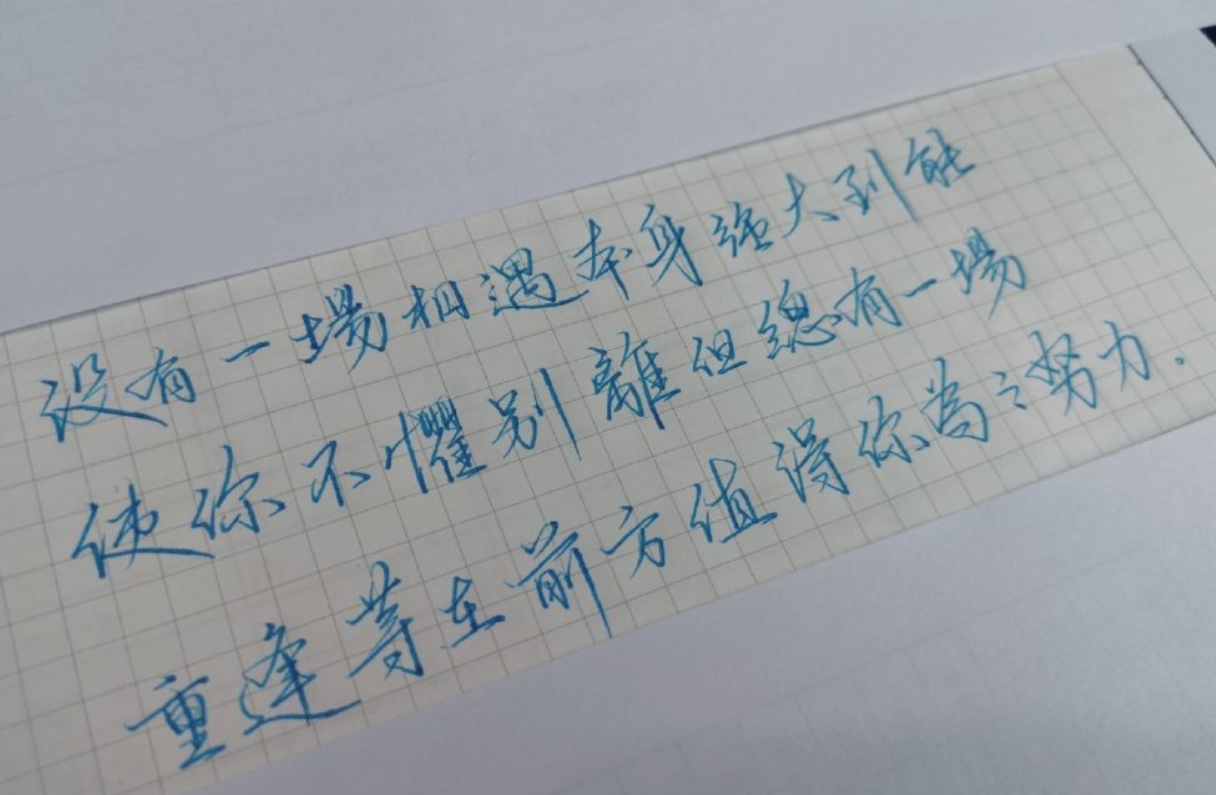 没有一場相遇本身强大到能
使你不懼别離但總有一場
重逢等在前方值得你為之努力.